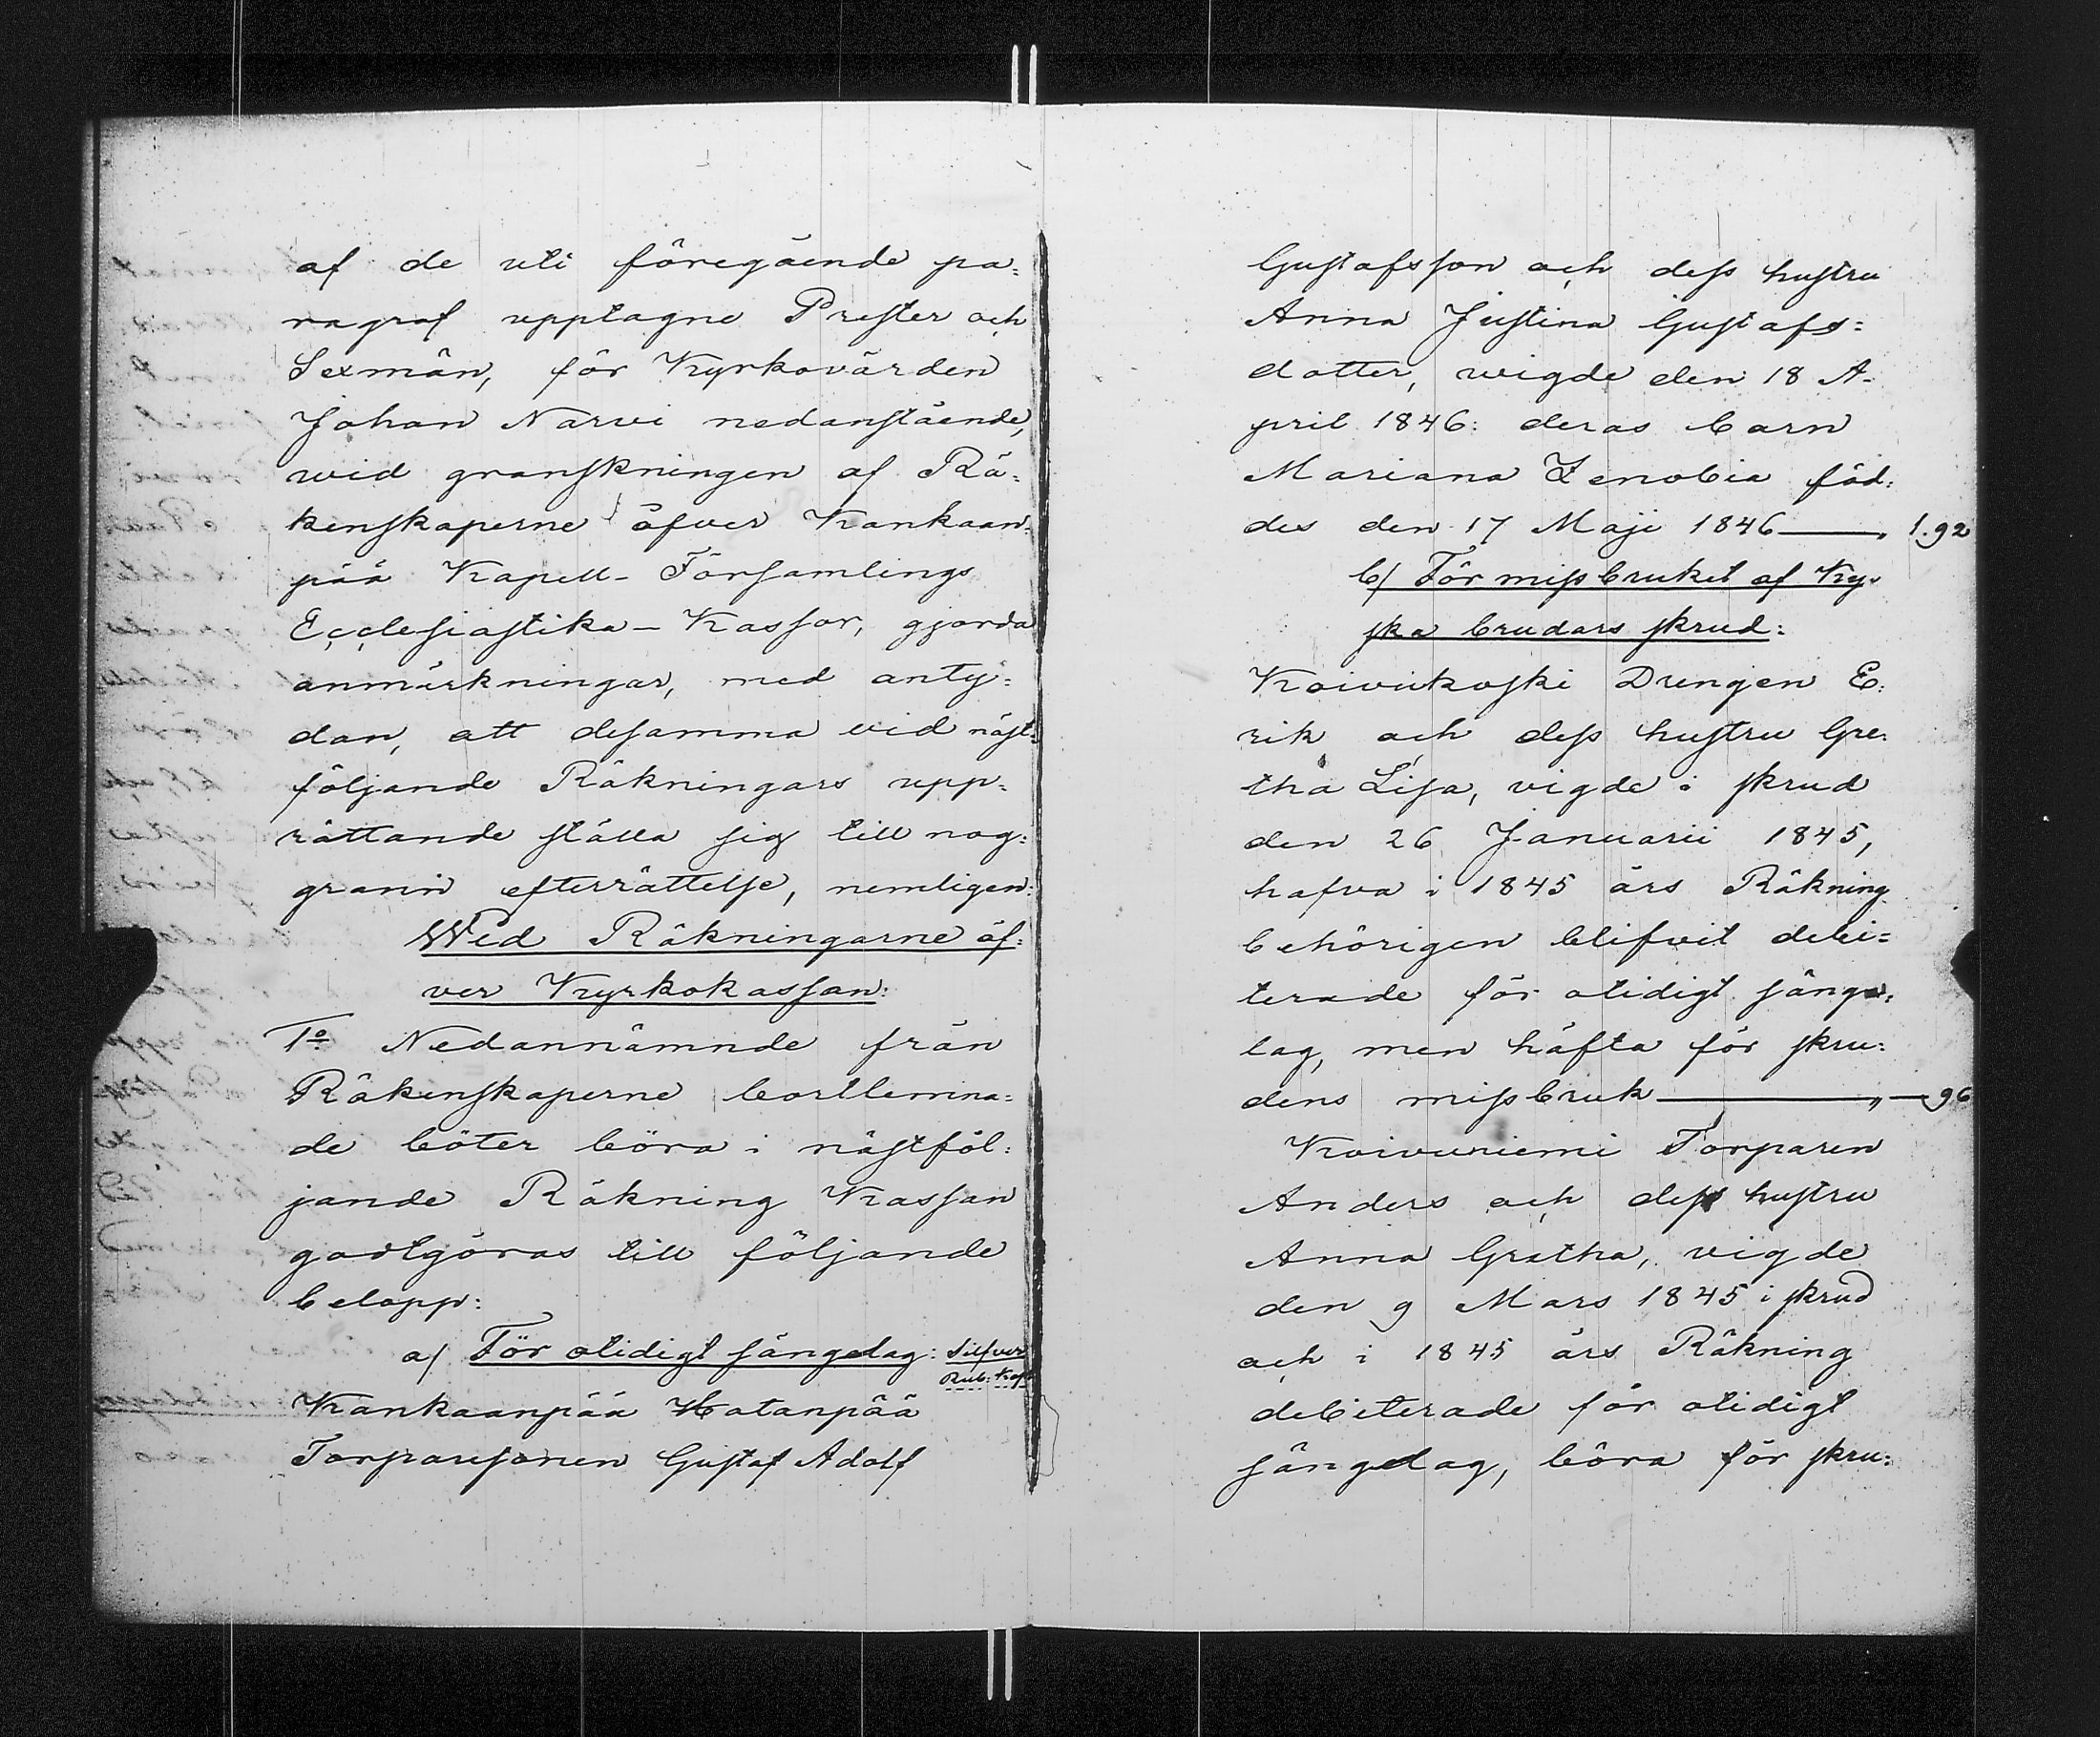 af de uti föregående pa=
ragraf upptagne Prester och
Sexmän, för Kyrkovärden
Johan Narvi nedanstående,
wid granskningen af Rä=
kenskaperne öfver Kankaan=
pää Kapell-Församlings
Ecclesiastika-Kassor, gjorda
anmärkningar, med anty=
dan, att desamma vid näst=
följande Räkningars upp=
rättande ställa sig till nog=
grann efterrättelse, nemligen:
Wid Räkningarne öf=
ver Kyrkokassan:
1o Nedannämnde från
Räkenskaperne bortlemna=
de böter böra i nästföl=
jande Räkning Kassan
godtgöras till följande
belopp:
a/ För otidigt sängelag: Silfver
Rub: Kop:
Kankaanpää Hatanpää
Torparesonen Gustaf Adolf
Gustafsson och dess hustru
Anna Justina Gustafs=
dotter, wigde den 18 A=
pril 1846: deras barn
Mariana Zenobia föd=
des den 17 Maji 1846 — 1.92
b/ För missbruket af Ky=
ska brudars skrud:
Koivukoski Drengen E=
rik och dess hustru Gre=
tha Lisa, vigde i skrud
den 26 Januarii 1845,
hafva i 1845 års Räkning
behörigen blifvit debi=
terade för otidigt sänge=
lag, men häfta för skru=
dens missbruk — „ — 96
Koivuniemi Torparen
Anders och dess hustru
Anna Gretha, vigde
den 9 Mars 1845 i skrud
och i 1845 års Räkning
debiterade för otidigt
sängelag, böra för skru=